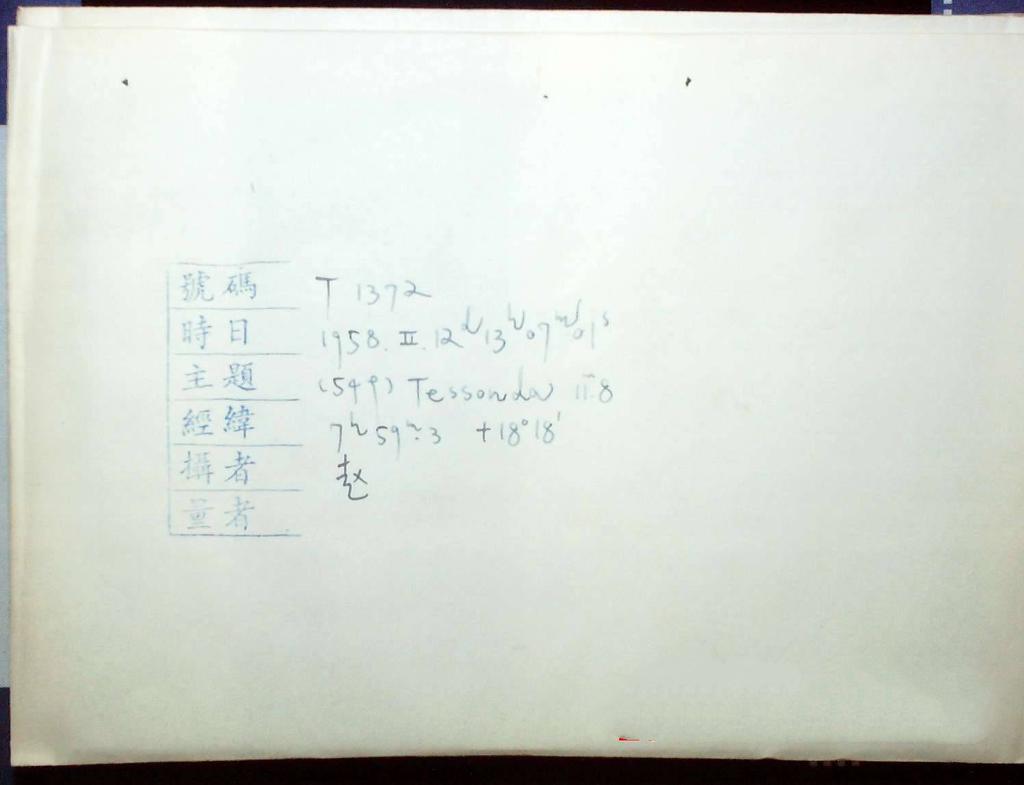 號碼 T 1372
時日 1958. II. 12ᵈ 13ʰ 07ᵐ 01ˢ
主題 (549) Tessonda 11.8
經緯 7ʰ 59ᵐ.3 +18°18'
攝者 赵
量者